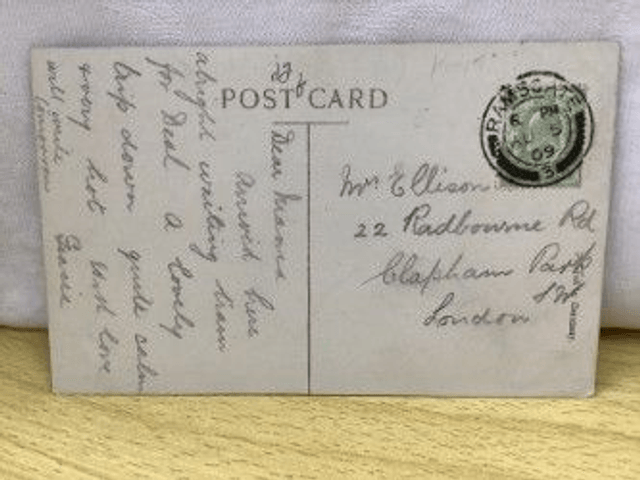 POST CARD
Dear Mama
Arrived here
alright waiting train
for Deal A lovely
trip down quite calm
& very hot best love
will write
tomorrow
RAMSGATE
PM
09
3
Mrs Ellison
22 Radbourne Rd
Clapham Park
SW
London
Germany